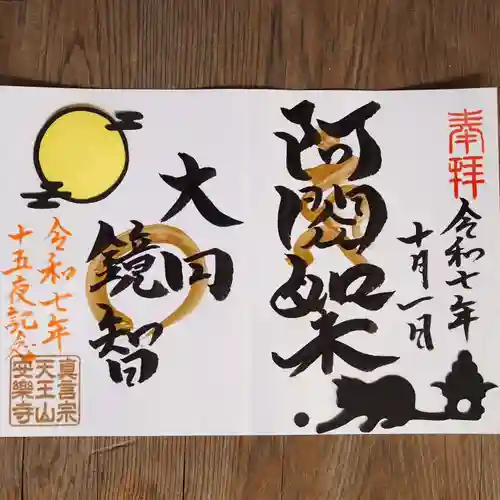 奉拝
令和七年
十月一日
阿閦如来
大円
鏡智
令和七年
十五夜記念
真言宗
天王山
安樂寺